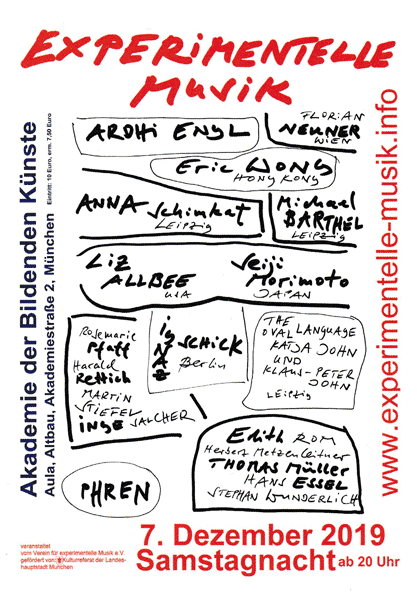 EXPERIMENTELLE
MUSIK
Akademie der Bildenden Künste
Aula, Altbau, Akademiestraße 2, München
Eintritt: 10 Euro, erm. 7,50 Euro
ARDHI ENGL
FLORIAN
NEUNER
WIEN
Eric WONG
HONG KONG
ANNA Schimkat
LEIPZIG
Michael
BARTHEL
LEIPZIG
Liz
ALLBEE
USA
Seiji
Morimoto
JAPAN
Rosemarie
Pfaff
Harald
Rettich
MARTIN
STIEFEL
inge SALCHER
iGNAZ
SCHICK
Berlin
THE
OVAL LANGUAGE
KATJA JOHN
UND
KLAUS-PETER
JOHN
Leipzig
Edith ROM
Herbert Metzenleitner
THOMAS Müller
HANS ESSEL
STEPHAN WUNDERLICH
PHREN
www.experimentelle-musik.info
veranstaltet
vom Verein für experimentelle Musik e.V.
gefördert von: Kulturreferat der Landes-
hauptstadt München
7. Dezember 2019
Samstagnacht ab 20 Uhr